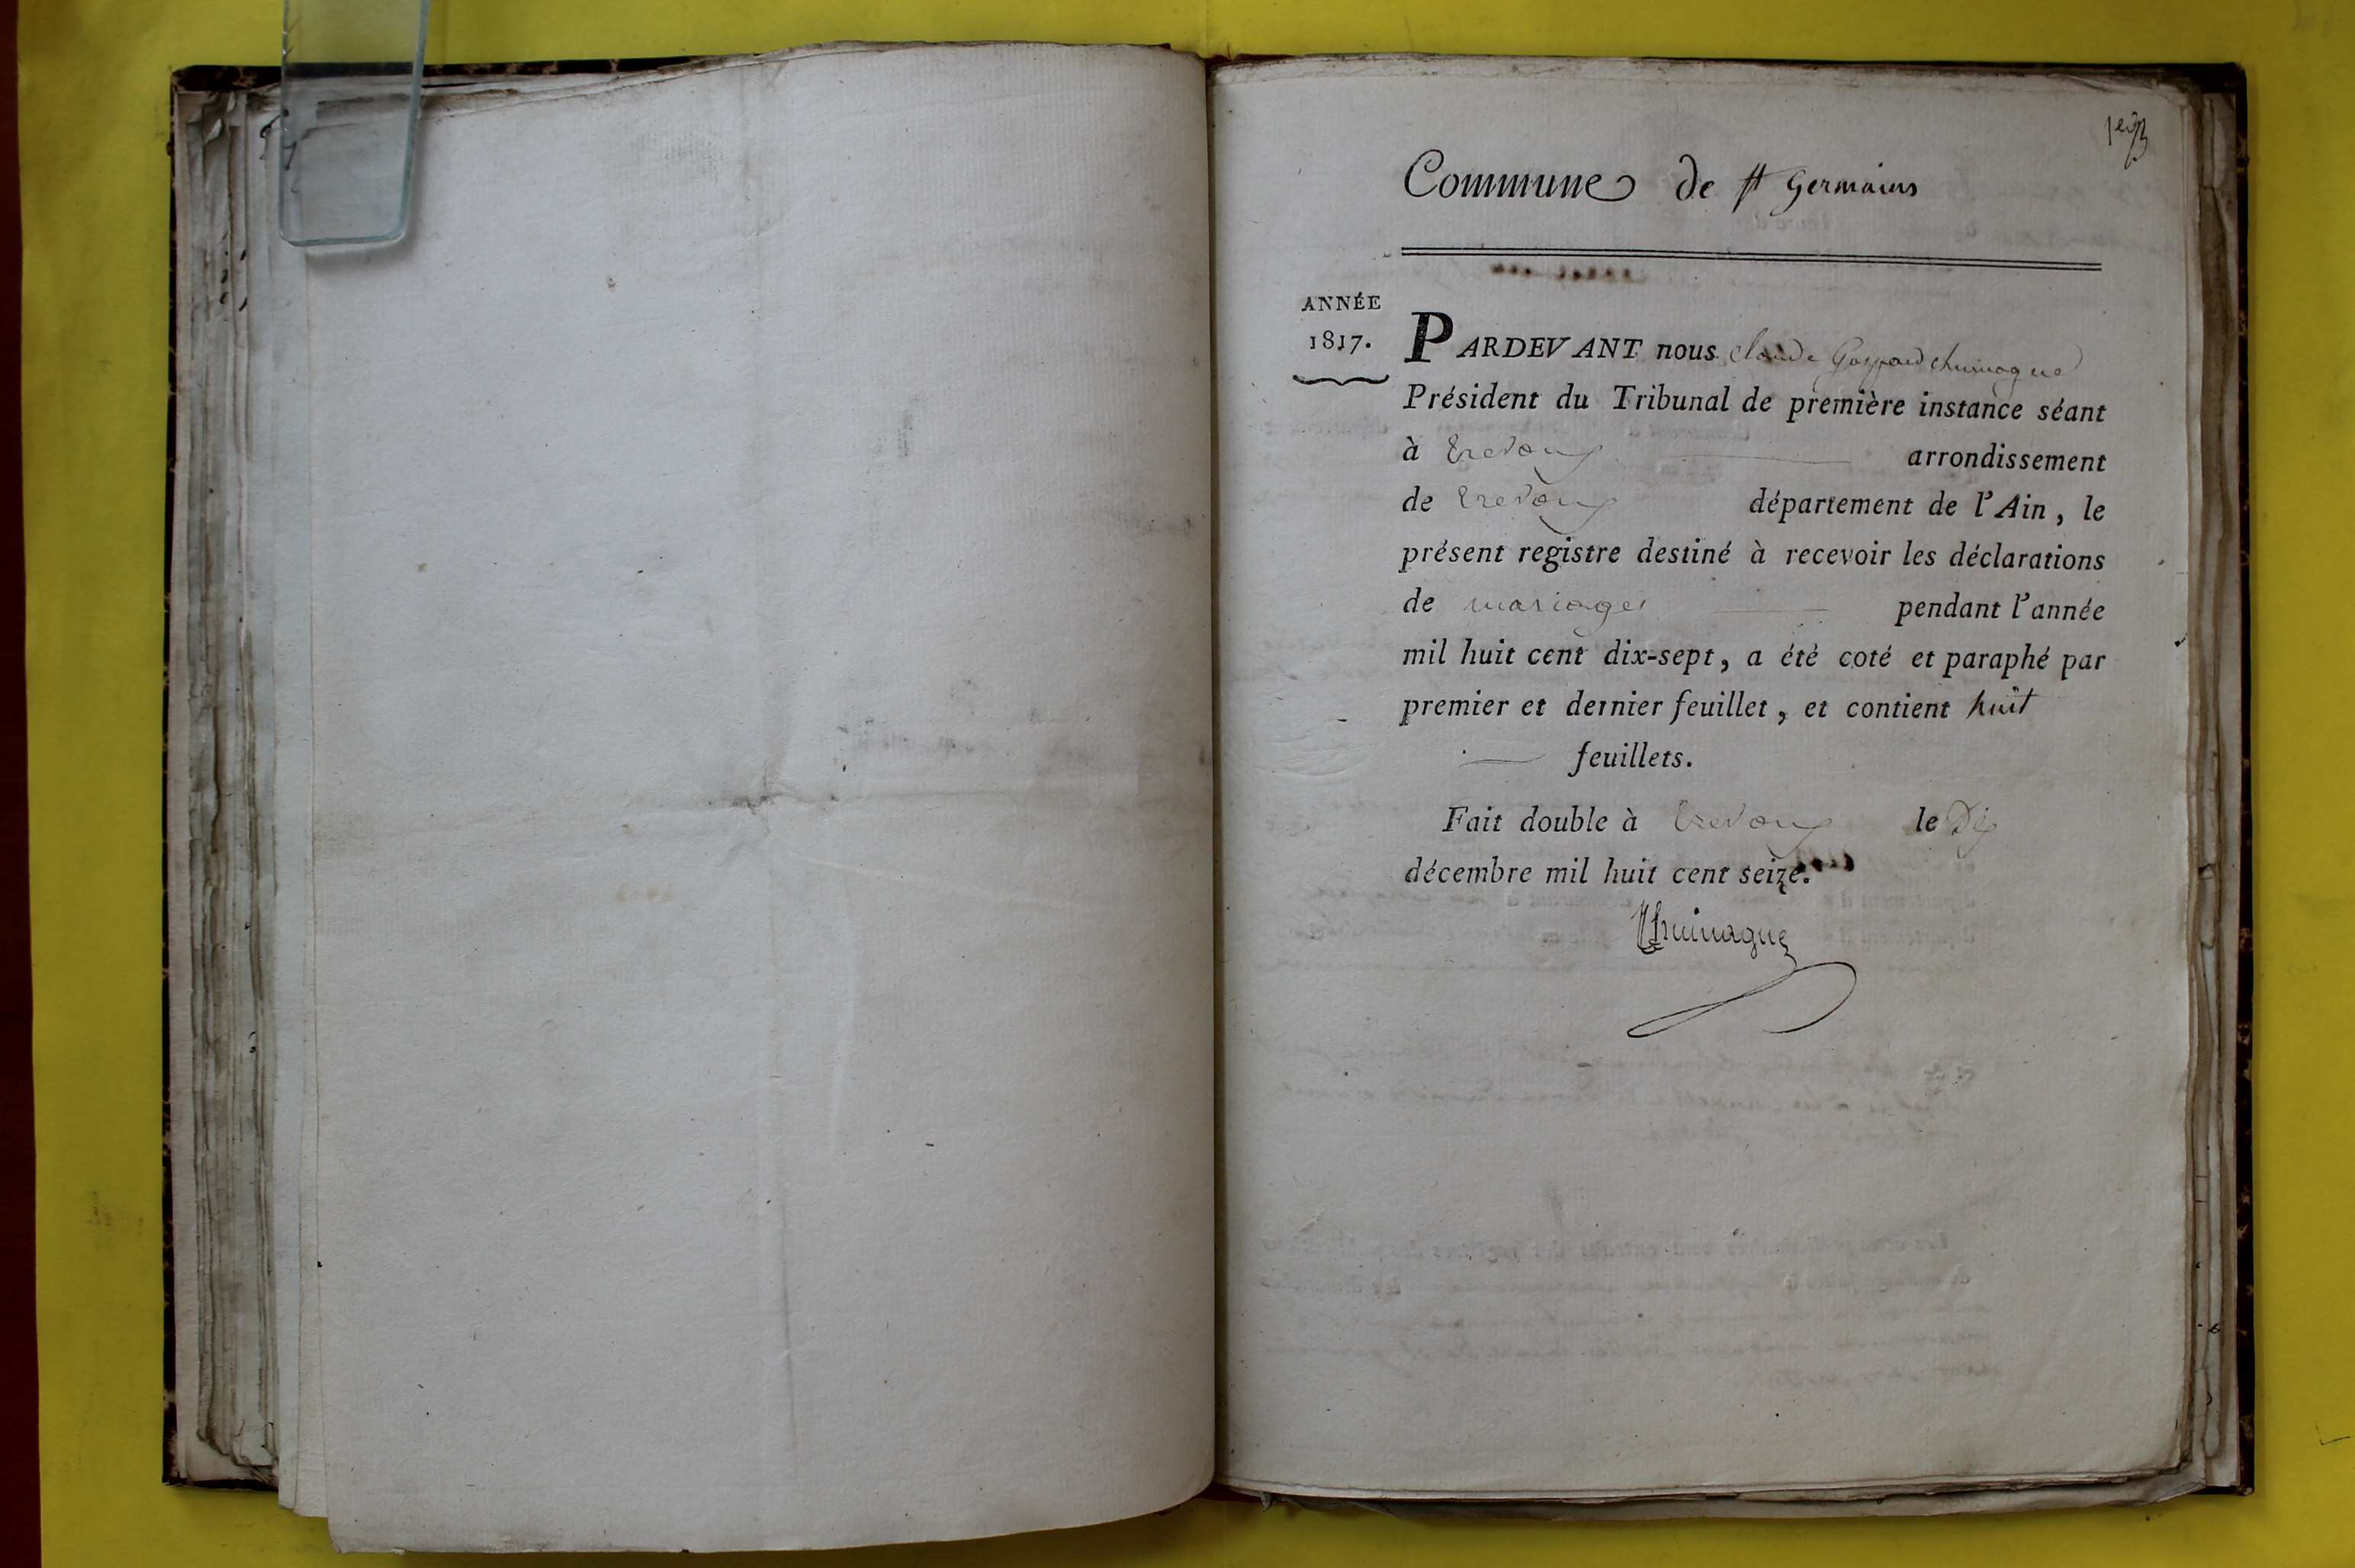 1er
Commune de St Germains
ANNÉE
1817.
PARDEVANT nous Claude Gaspard Chuinague
Président du Tribunal de première instance séant
à Trevoux arrondissement
de Trevoux département de l'Ain, le
présent registre destiné à recevoir les déclarations
de mariages pendant l'année
mil huit cent dix-sept, a été coté et paraphé par
premier et dernier feuillet, et contient huit
feuillets.
Fait double à Trevoux le Dix
décembre mil huit cent seize.
Chuinague